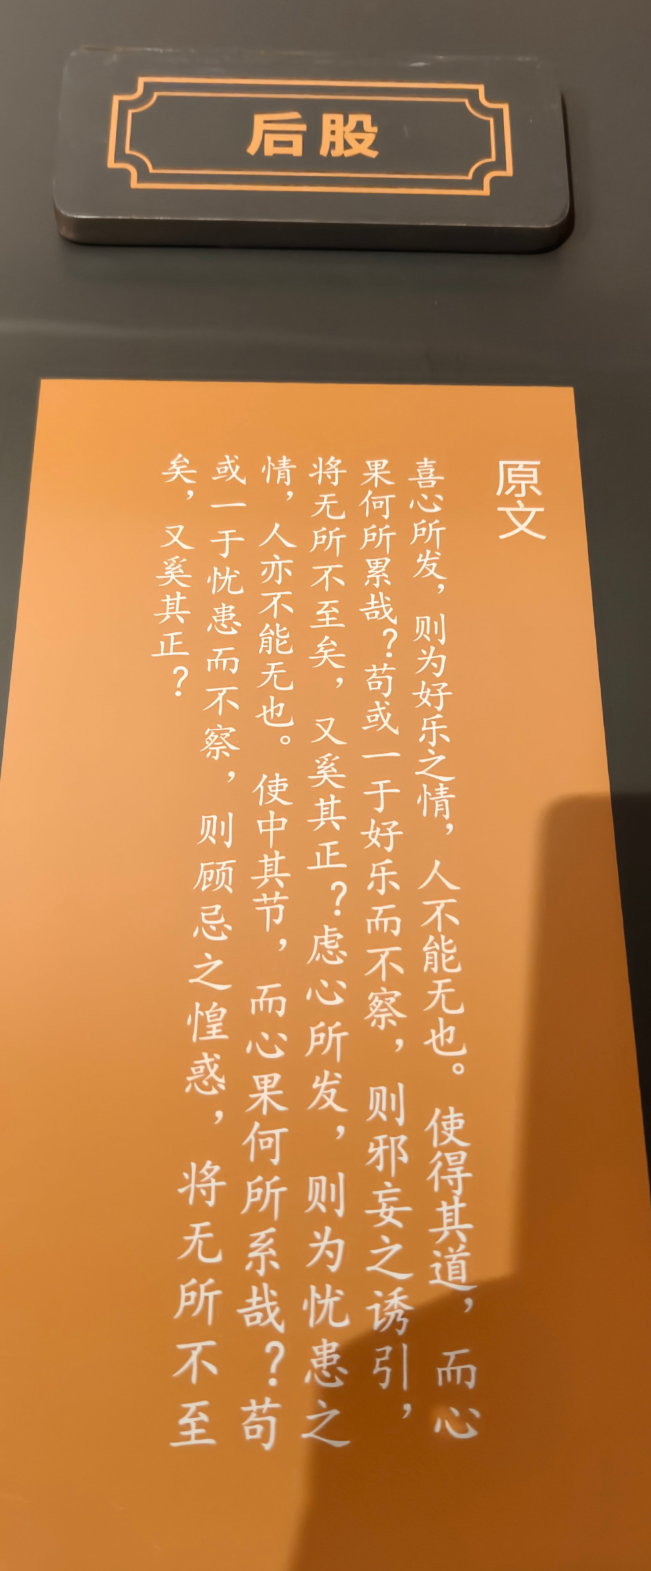 后股
原文
喜心所发，则为好乐之情，人不能无也。使得其道，而心
果何所累哉？苟或一于好乐而不察，则邪妄之诱引，
将无所不至矣，又奚其正？虑心所发，则为忧患之
情，人亦不能无也。使中其节，而心果何所系哉？苟
或一于忧患而不察，则顾忌之惶惑，将无所不至
矣，又奚其正？